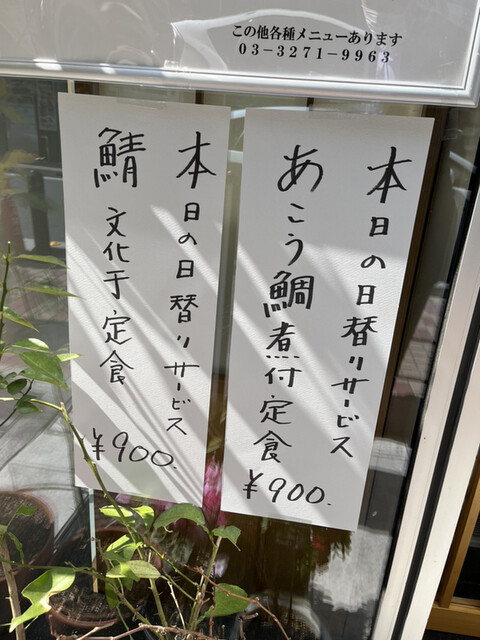 この他各種メニューあります
03-3271-9963
本日の日替りサービス
あこう鯛煮付定食
¥900.
本日の日替りサービス
鯖文化干定食
¥900.